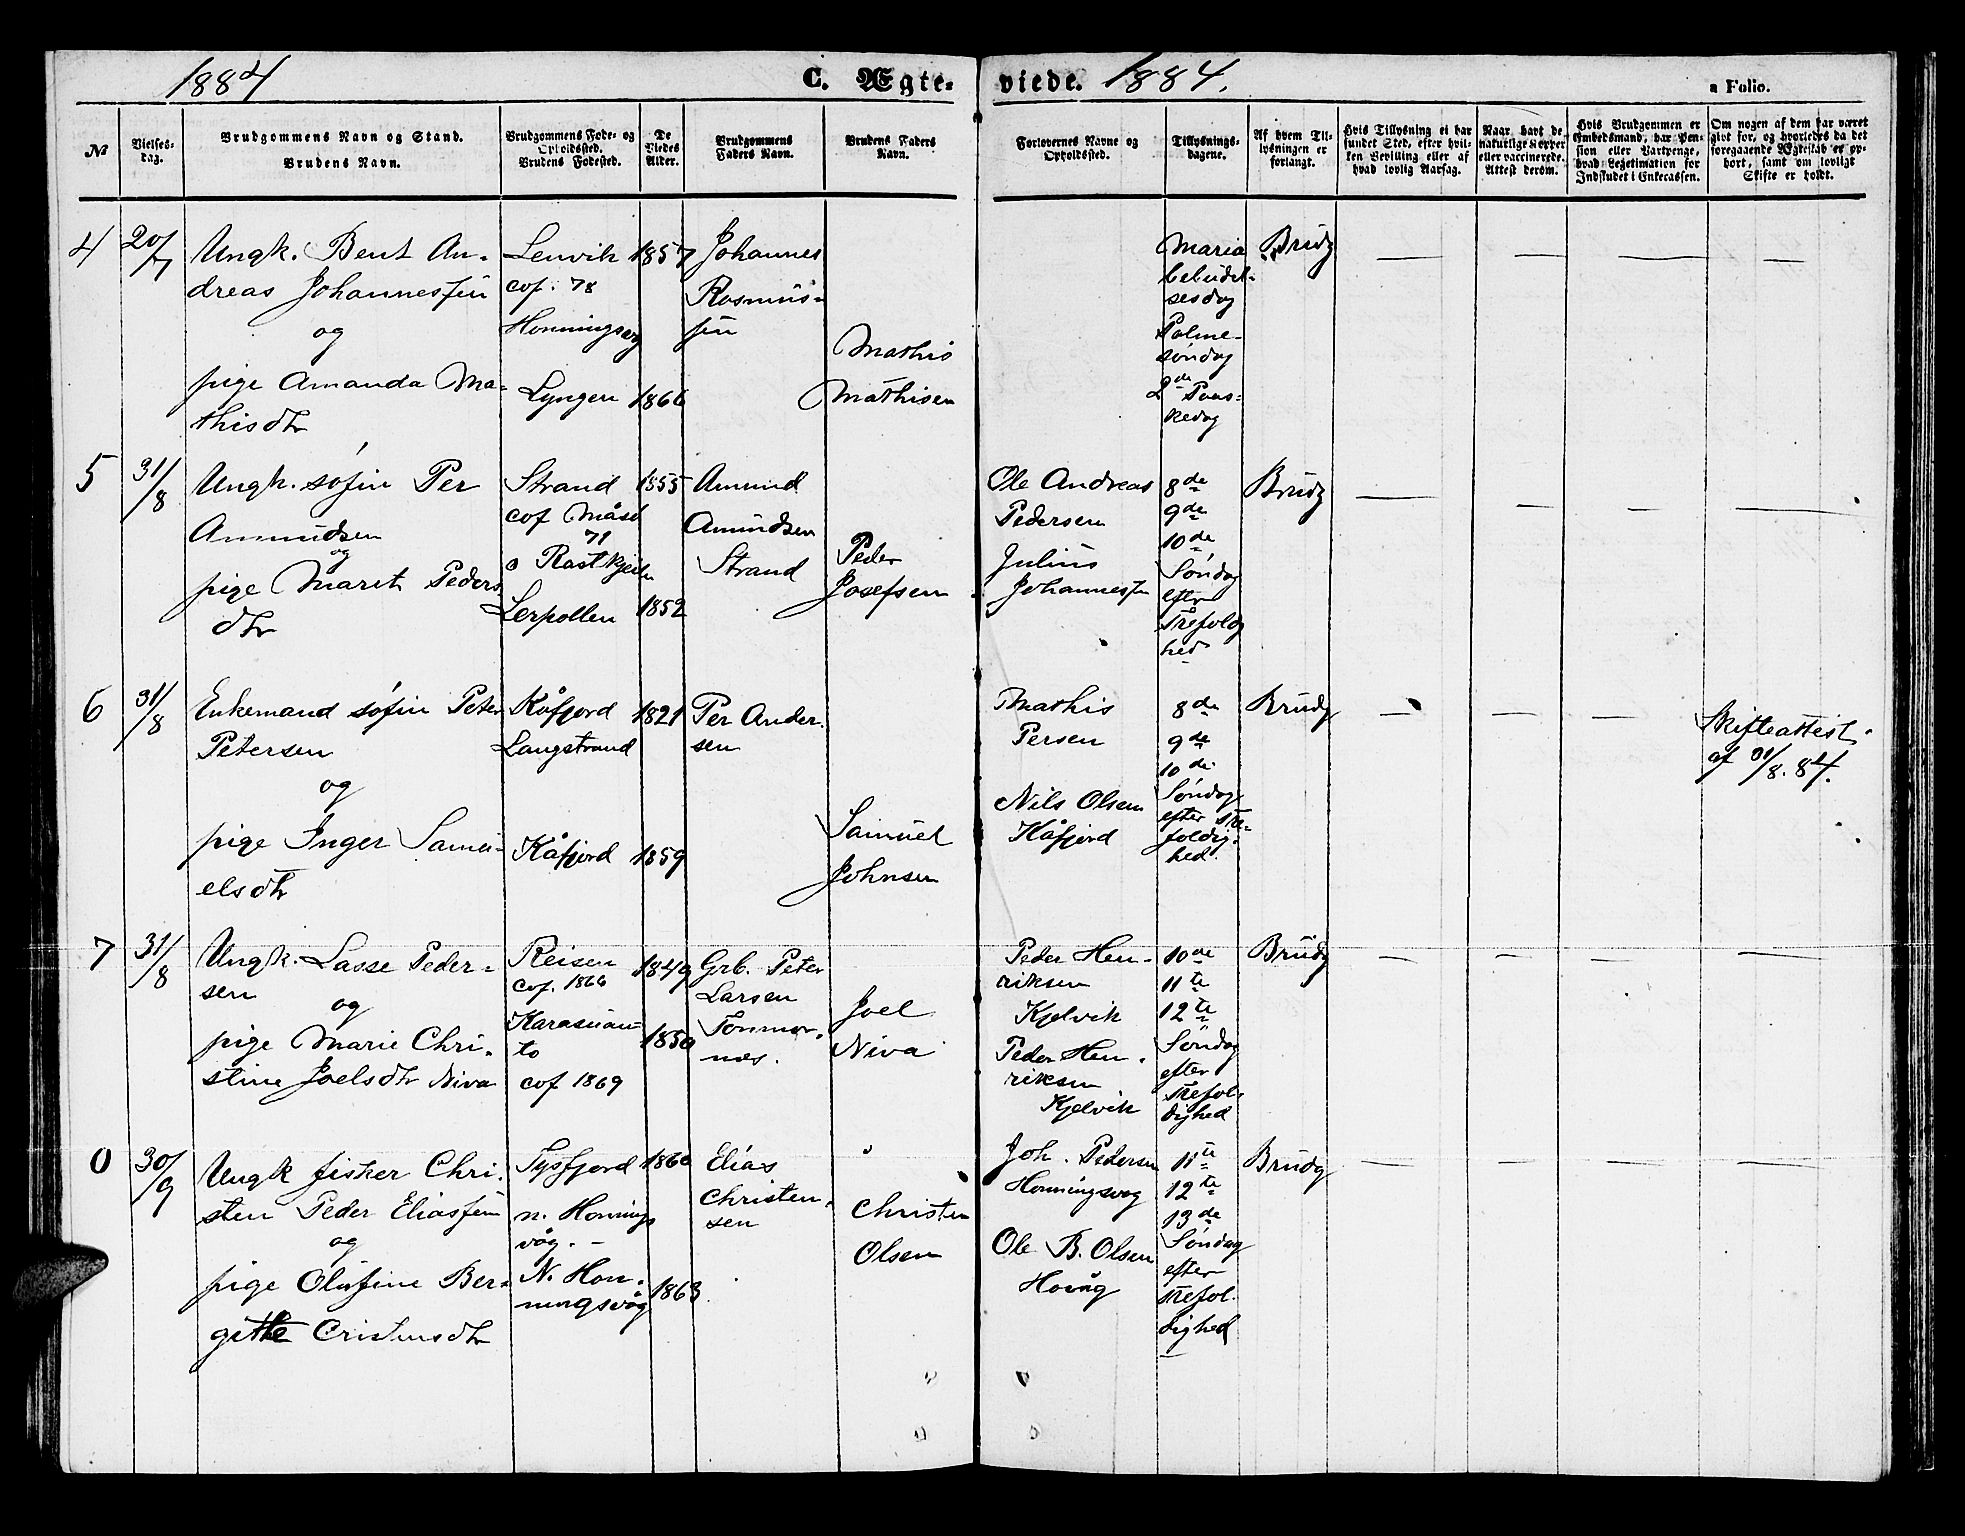 1884
C. Ægte-
viede. 1884.
a Folio.
No
Vielses-
dag.
Brudgommens Navn og Stand.
Brudens Navn.
Brudgommens Føde- og
Opholdssted.
Brudens Fødested.
De
Viedes
Alder.
Brudgommens
Faders Navn.
Brudens Faders
Navn.
Forlovernes Navne og
Opholdssted.
Tillysnings-
dagene.
Af hvem Til-
lysningen er
forlangt.
Hvis Tillysning ei har
fundet Sted, efter hvil-
ken Bevilling eller af
hvad lovlig Aarsag.
Naar havt de
naturlige Kopper
eller vaccinerede.
Attest derom.
Hvis Brudgommen er
Embedsmand, har Pen-
sion eller Vartpenge,
hvad Legitimation for
Indskudet i Enkecassen.
Om nogen af dem har været
gift før, og hvorledes da det
foregaaende Ægteskab er op-
hørt, samt om lovligt
Skifte er holdt.
4
20/7
Ungk. Bent An-
dreas Johannessen
og
pige Amanda Ma-
thisdtr
Lenvik
cof. 78
Honningsvåg
Lyngen
1857
1866
Johannes
Rasmus-
sen
Mathis
Mathisen
Maria
bebudel-
sesdag
Palme-
søndag
2de Paas-
kedag
Brudg
5
31/8
Ungk. søfin Per
Amundsen
og
pige Marit Peders
dtr
Strand
cof Måsø
71
Lerpollen
1855
1852
Amund
Amundsen
Strand
Peder
Josefsen
Ole Andreas
Pedersen
Julius
Johannessen
8de
9de
10de
Søndag
efter
Trefoldg
hed
Brudg
6
31/8
Enkemand søfin Peter
Petersen
og
pige Inger Samu-
elsdtr
Kåfjord
Langstrand
Kåfjord
1821
1859
Per Ander-
sen
Samuel
Johnsen
Mathis
Persen
Nils Olsen
Kåfjord
8de
9de
10de
Søndag
efter Tre-
foldig-
hed.
Brudg
Skifteattest
af 31/8. 84.
7
31/8
Ungk. Lasse Peder-
sen
og
pige Marie Chri-
stine Joelsdtr Niva
Reisen
cof. 1866
Karasuan-
to
cof 1869
1849
1850
Grb. Peter
Larsen
Joel
Niva
Peder Hen-
riksen
Kjelvik
Peder Hen-
riksen
Kjelvik
10de
11te
12te
Søndag
efter
Trefol-
dighed
Brudg
30/9
Ungk fisker Chri-
sten Peder Eliassen
og
pige Olufine Ber-
gitte Cristensdtr
Tysfjord
n. Honnings
våg.
N. Hon-
ningsvåg
1860
1863
Elias
Christen-
sen
Christen
Olsen
Joh. Pedersen
Honningsvåg
Ole B. Olsen
11te
12te
13de
Søndag
efter
Trefol-
dighed
Brudg